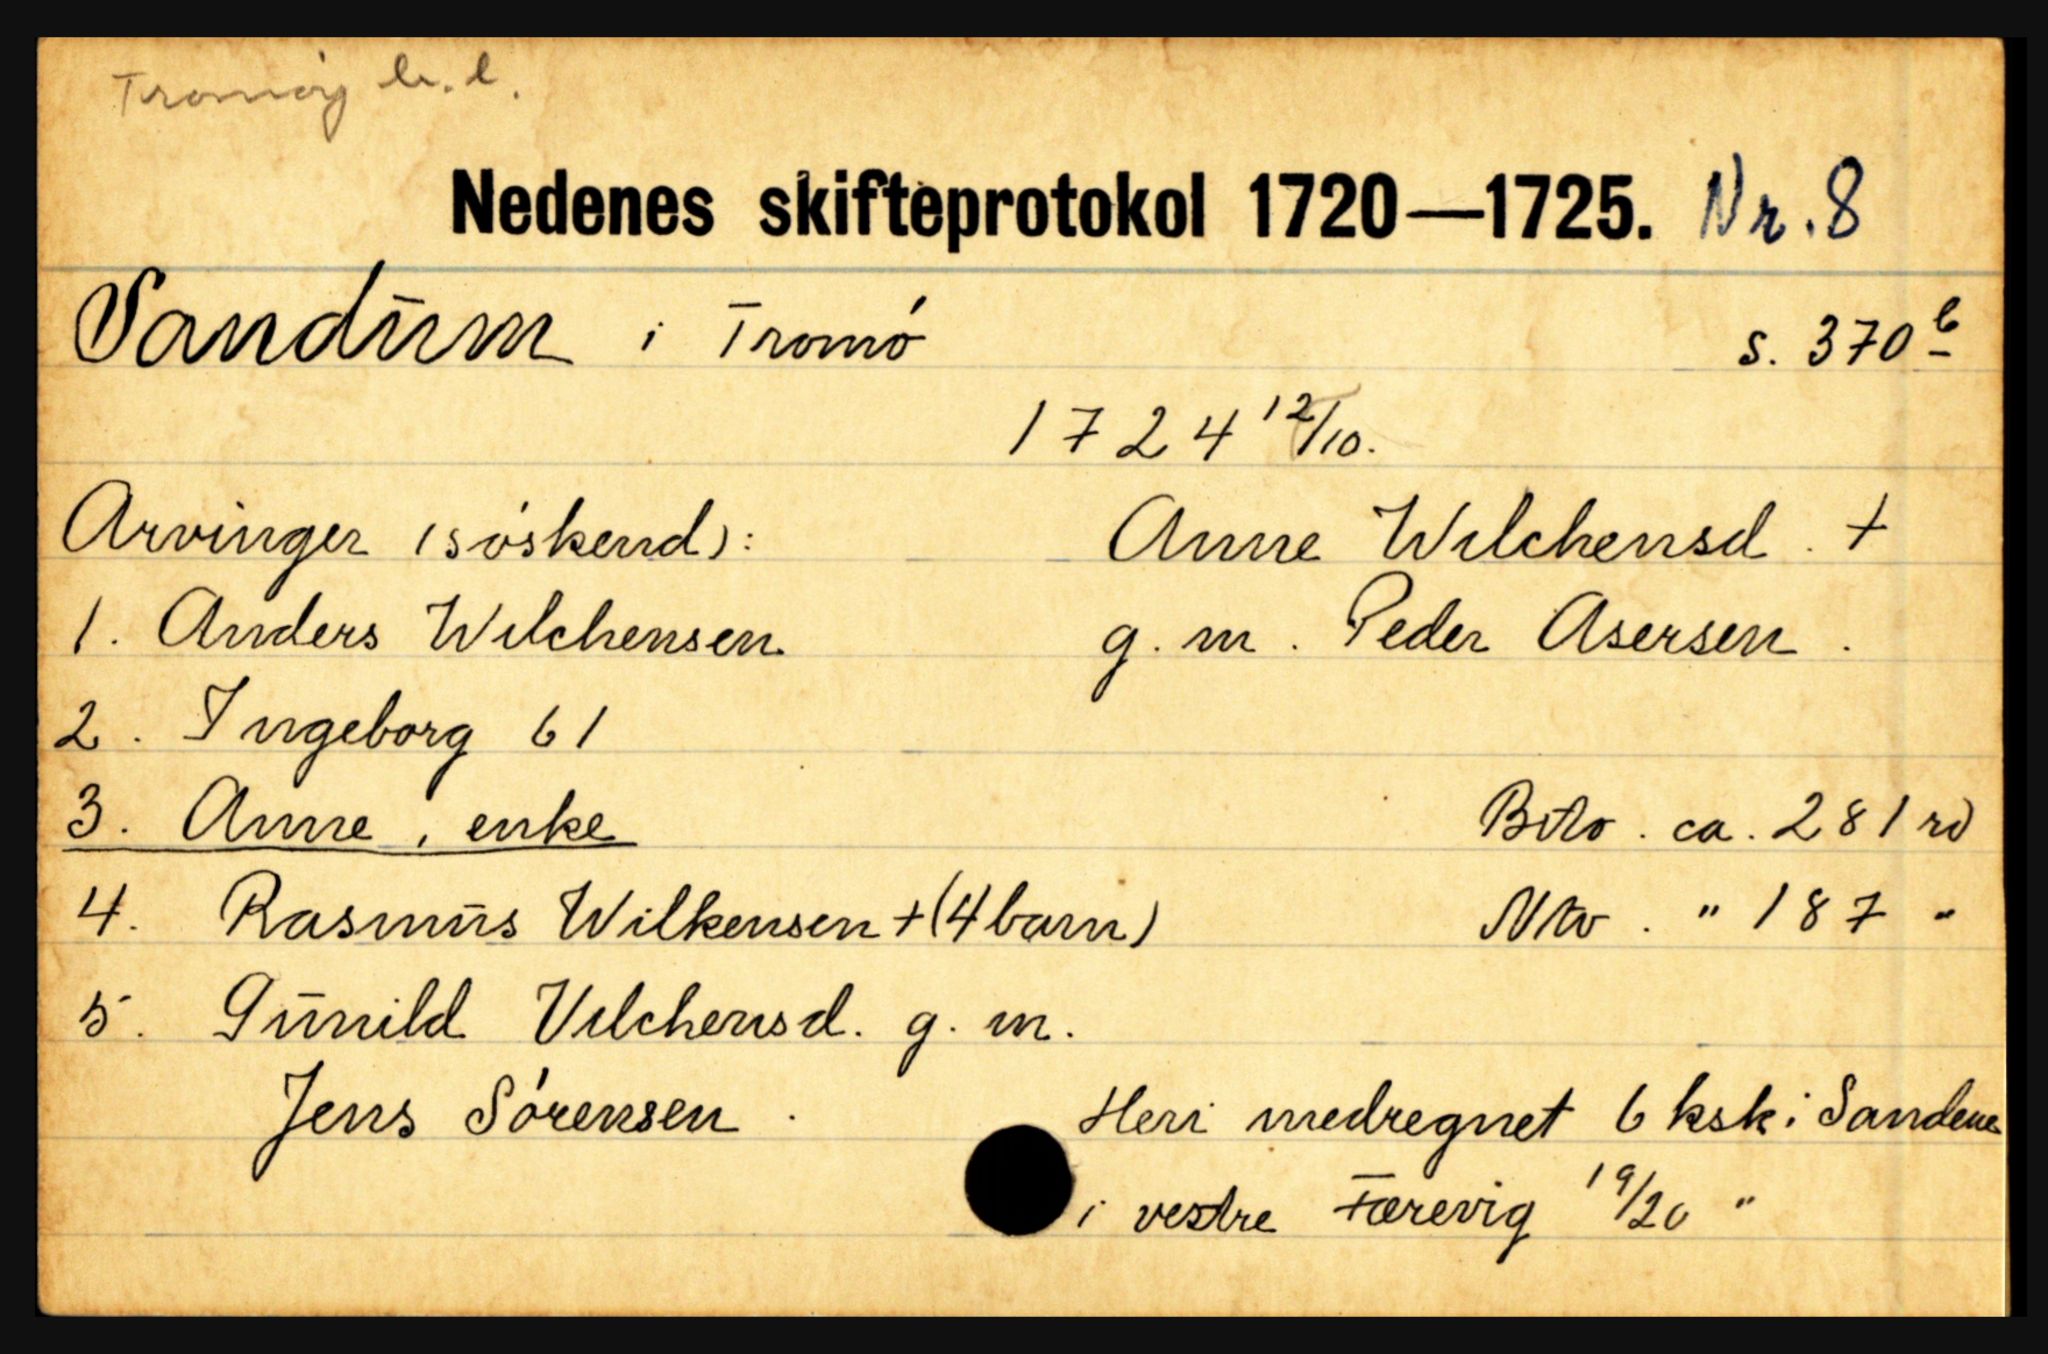 Tromøy
Nedenes skifteprotokol 1720—1725. Nr. 8
Sandum i Tromö s. 370 b
1724 12/10.
Arvinger (söskend): Anne Wilchensd. +
1. Anders Wilchensen g. m. Peder Asersen.
2. Ingeborg 61
3. Anne, enke Btto. ca. 281 rd
4. Rasmus Wilkensen + (4 barn) Ntto. " 187 "
5. Gunild Vilchensd. g. m.
Jens Sörensen. Heri medregnet 6 ksk i Sandene
i vestre Færevig 19/20 "